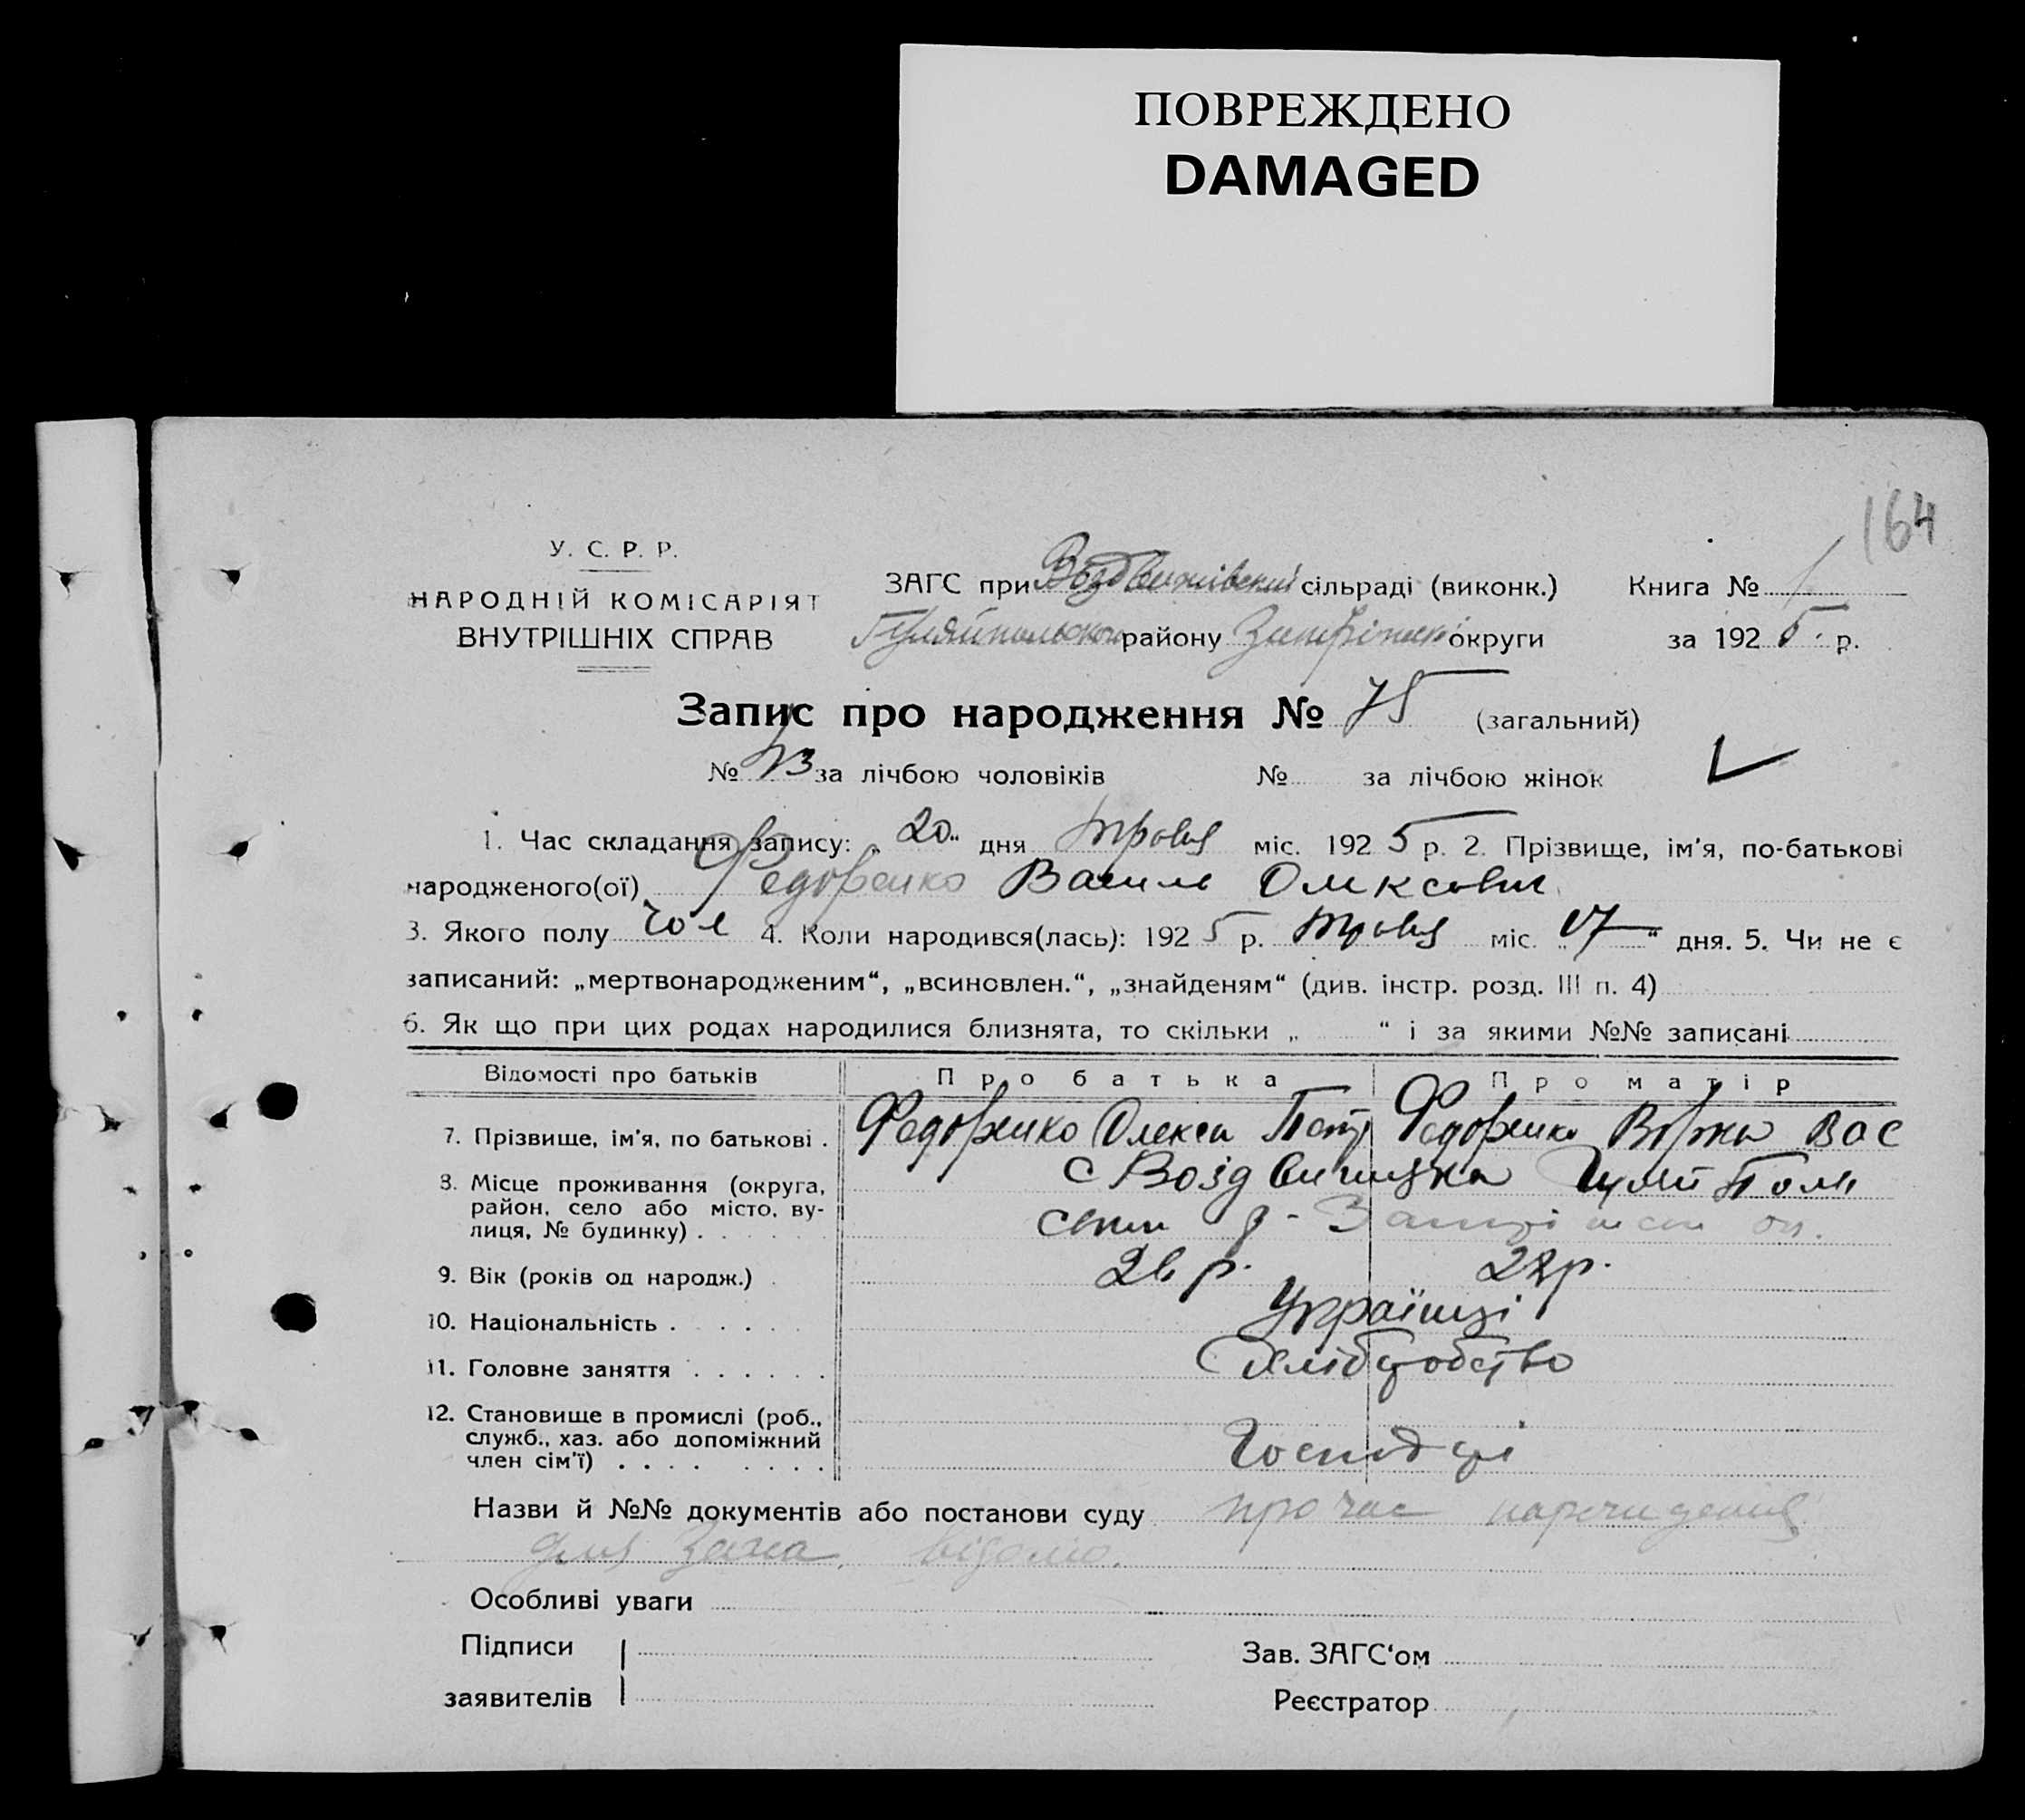 ПОВРЕЖДЕНО
DAMAGED
164
У. С. Р. Р.
НАРОДНІЙ КОМІСАРІЯТ
ВНУТРІШНІХ СПРАВ
ЗАГС при Воздвижівский сільраді (виконк.) Книга № 1
Гуляйпольского району округи за 1925 р.
Запис про народження № 75 (загальний)
№ за лічбою чоловіків № за лічбою жінок
1. Час складання запису: „20“ дня травня міс. 1925 р. 2. Прізвище, ім'я, по-батькові
народженого(ої) Федоренко Василь Олексович
3. Якого полу чол 4. Коли народився(лась): 1925 р. травня міс. „17“ дня. 5. Чи не є
записаний: „мертвонародженим“, „всиновлен.“, „знайденям“ (див. інстр. розд. III п. 4)
6. Як що при цих родах народилися близнята, то скільки „ “ і за якими №№ записані
Відомості про батьків Про батька Про матір
7. Прізвище, ім'я, по батькові . Федоренко Олекса Петр Федоренко Вас
8. Місце проживання (округа, район, село або місто, вулиця, № будинку) . с Воздвишузка
9. Вік (років од народж.) . 26 р. 22 р.
10. Національність . Українці
11. Головне заняття . Хліборобство
12. Становище в промислі (роб., служб., хаз. або допоміжний член сім'ї) . Господарі
Назви й №№ документів або постанови суду про час народження
для Загса відомо.
Особливі уваги
Підписи Зав. ЗАГС'ом
заявителів Реєстратор